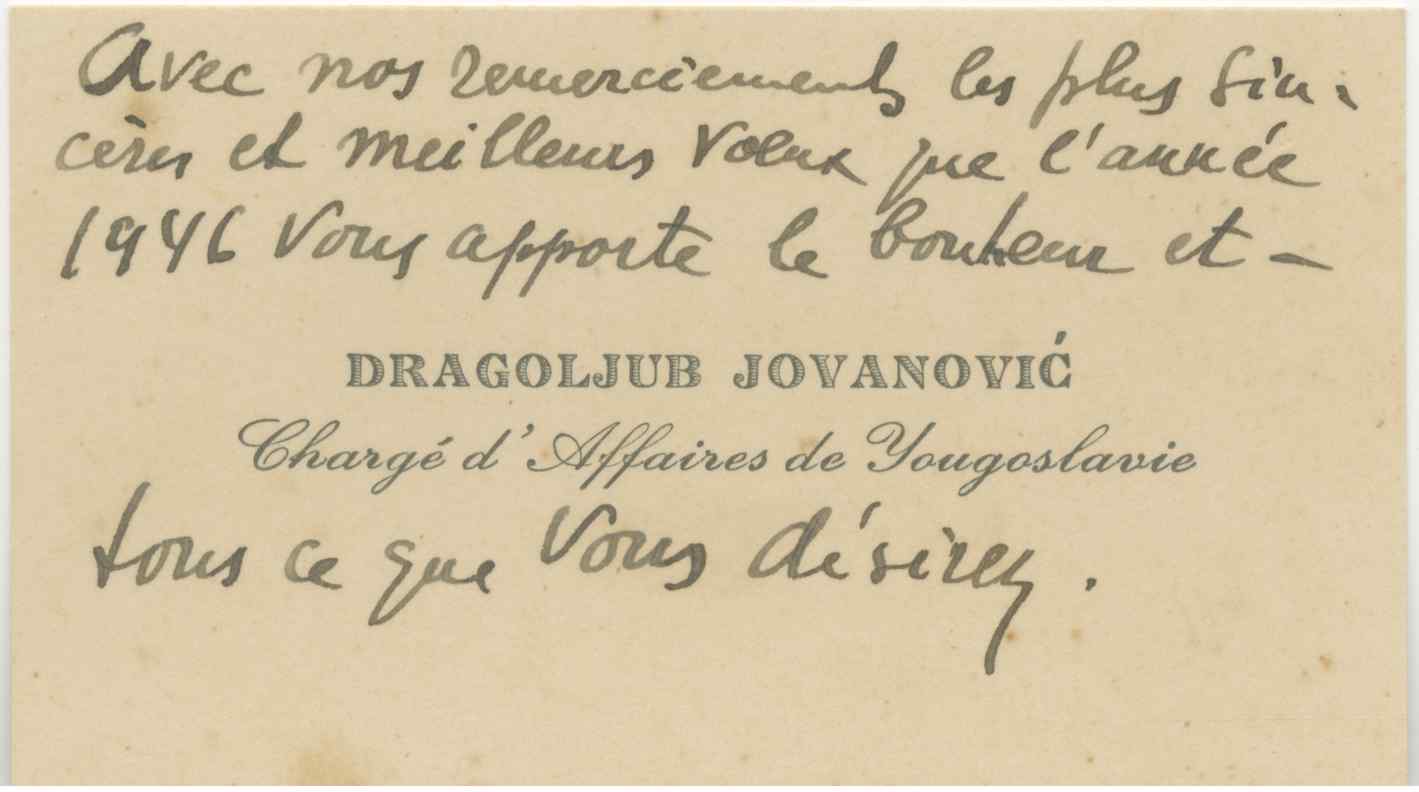 Avec nos remerciements les plus sin-
cères et meilleurs voeux que l'année
1946 Vous apporte le bonheur et –
DRAGOLJUB JOVANOVIĆ
Chargé d'Affaires de Yougoslavie
tous ce que Vous désirez.